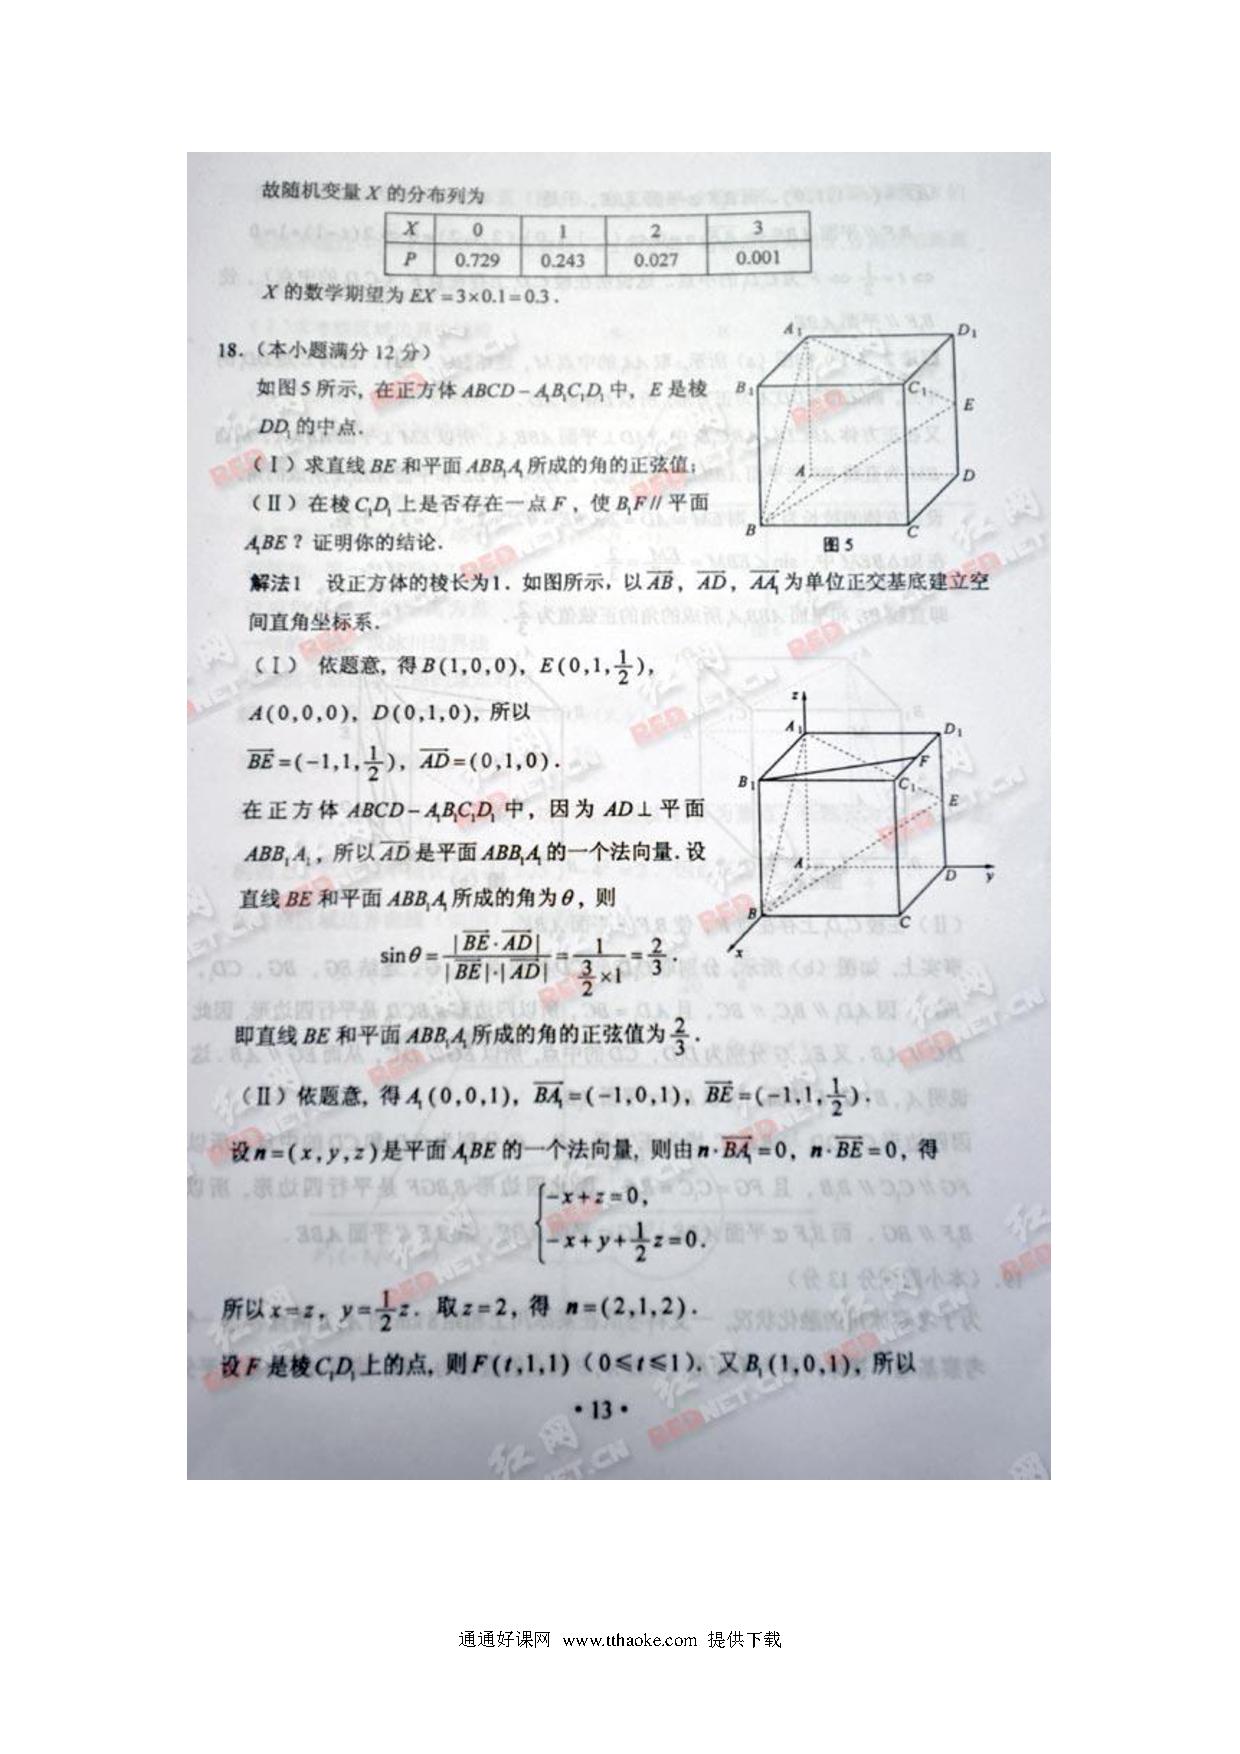 故随机变量 X 的分布列为
X 0 1 2 3
P 0.729 0.243 0.027 0.001
X 的数学期望为 EX=3×0.1=0.3.
18.(本小题满分12分)
如图5所示, 在正方体 ABCD-A₁B₁C₁D₁ 中, E 是棱
DD₁ 的中点.
(Ⅰ)求直线 BE 和平面 ABB₁A₁ 所成的角的正弦值;
(Ⅱ)在棱 C₁D₁ 上是否存在一点 F, 使 B₁F∥平面
A₁BE? 证明你的结论.
A₁ D₁
B₁ C₁
E
A D
B C
图5
解法1 设正方体的棱长为1. 如图所示, 以 \overrightarrow{AB}, \overrightarrow{AD}, \overrightarrow{AA₁} 为单位正交基底建立空
间直角坐标系.
(Ⅰ) 依题意, 得 B(1,0,0), E(0,1,\frac{1}{2}),
A(0,0,0), D(0,1,0), 所以
\overrightarrow{BE}=(-1,1,\frac{1}{2}), \overrightarrow{AD}=(0,1,0).
在正方体 ABCD-A₁B₁C₁D₁ 中, 因为 AD⊥平面
ABB₁A₁, 所以 \overrightarrow{AD} 是平面 ABB₁A₁ 的一个法向量. 设
直线 BE 和平面 ABB₁A₁ 所成的角为 θ, 则
z
A₁ D₁
F
B₁ C₁
E
A D y
B C
x
sinθ=\frac{|\overrightarrow{BE}·\overrightarrow{AD}|}{|\overrightarrow{BE}|·|\overrightarrow{AD}|}=\frac{1}{\frac{3}{2}×1}=\frac{2}{3}.
即直线 BE 和平面 ABB₁A₁ 所成的角的正弦值为 \frac{2}{3}.
(Ⅱ)依题意, 得 A₁(0,0,1), \overrightarrow{BA₁}=(-1,0,1), \overrightarrow{BE}=(-1,1,\frac{1}{2}).
设 n=(x,y,z) 是平面 A₁BE 的一个法向量, 则由 n·\overrightarrow{BA₁}=0, n·\overrightarrow{BE}=0, 得
{-x+z=0,
-x+y+\frac{1}{2}z=0.
所以 x=z, y=\frac{1}{2}z. 取 z=2, 得 n=(2,1,2).
设 F 是棱 C₁D₁ 上的点, 则 F(t,1,1) (0≤t≤1). 又 B₁(1,0,1), 所以
·13·
红网
REDNET.CN
通通好课网 www.tthaoke.com 提供下载